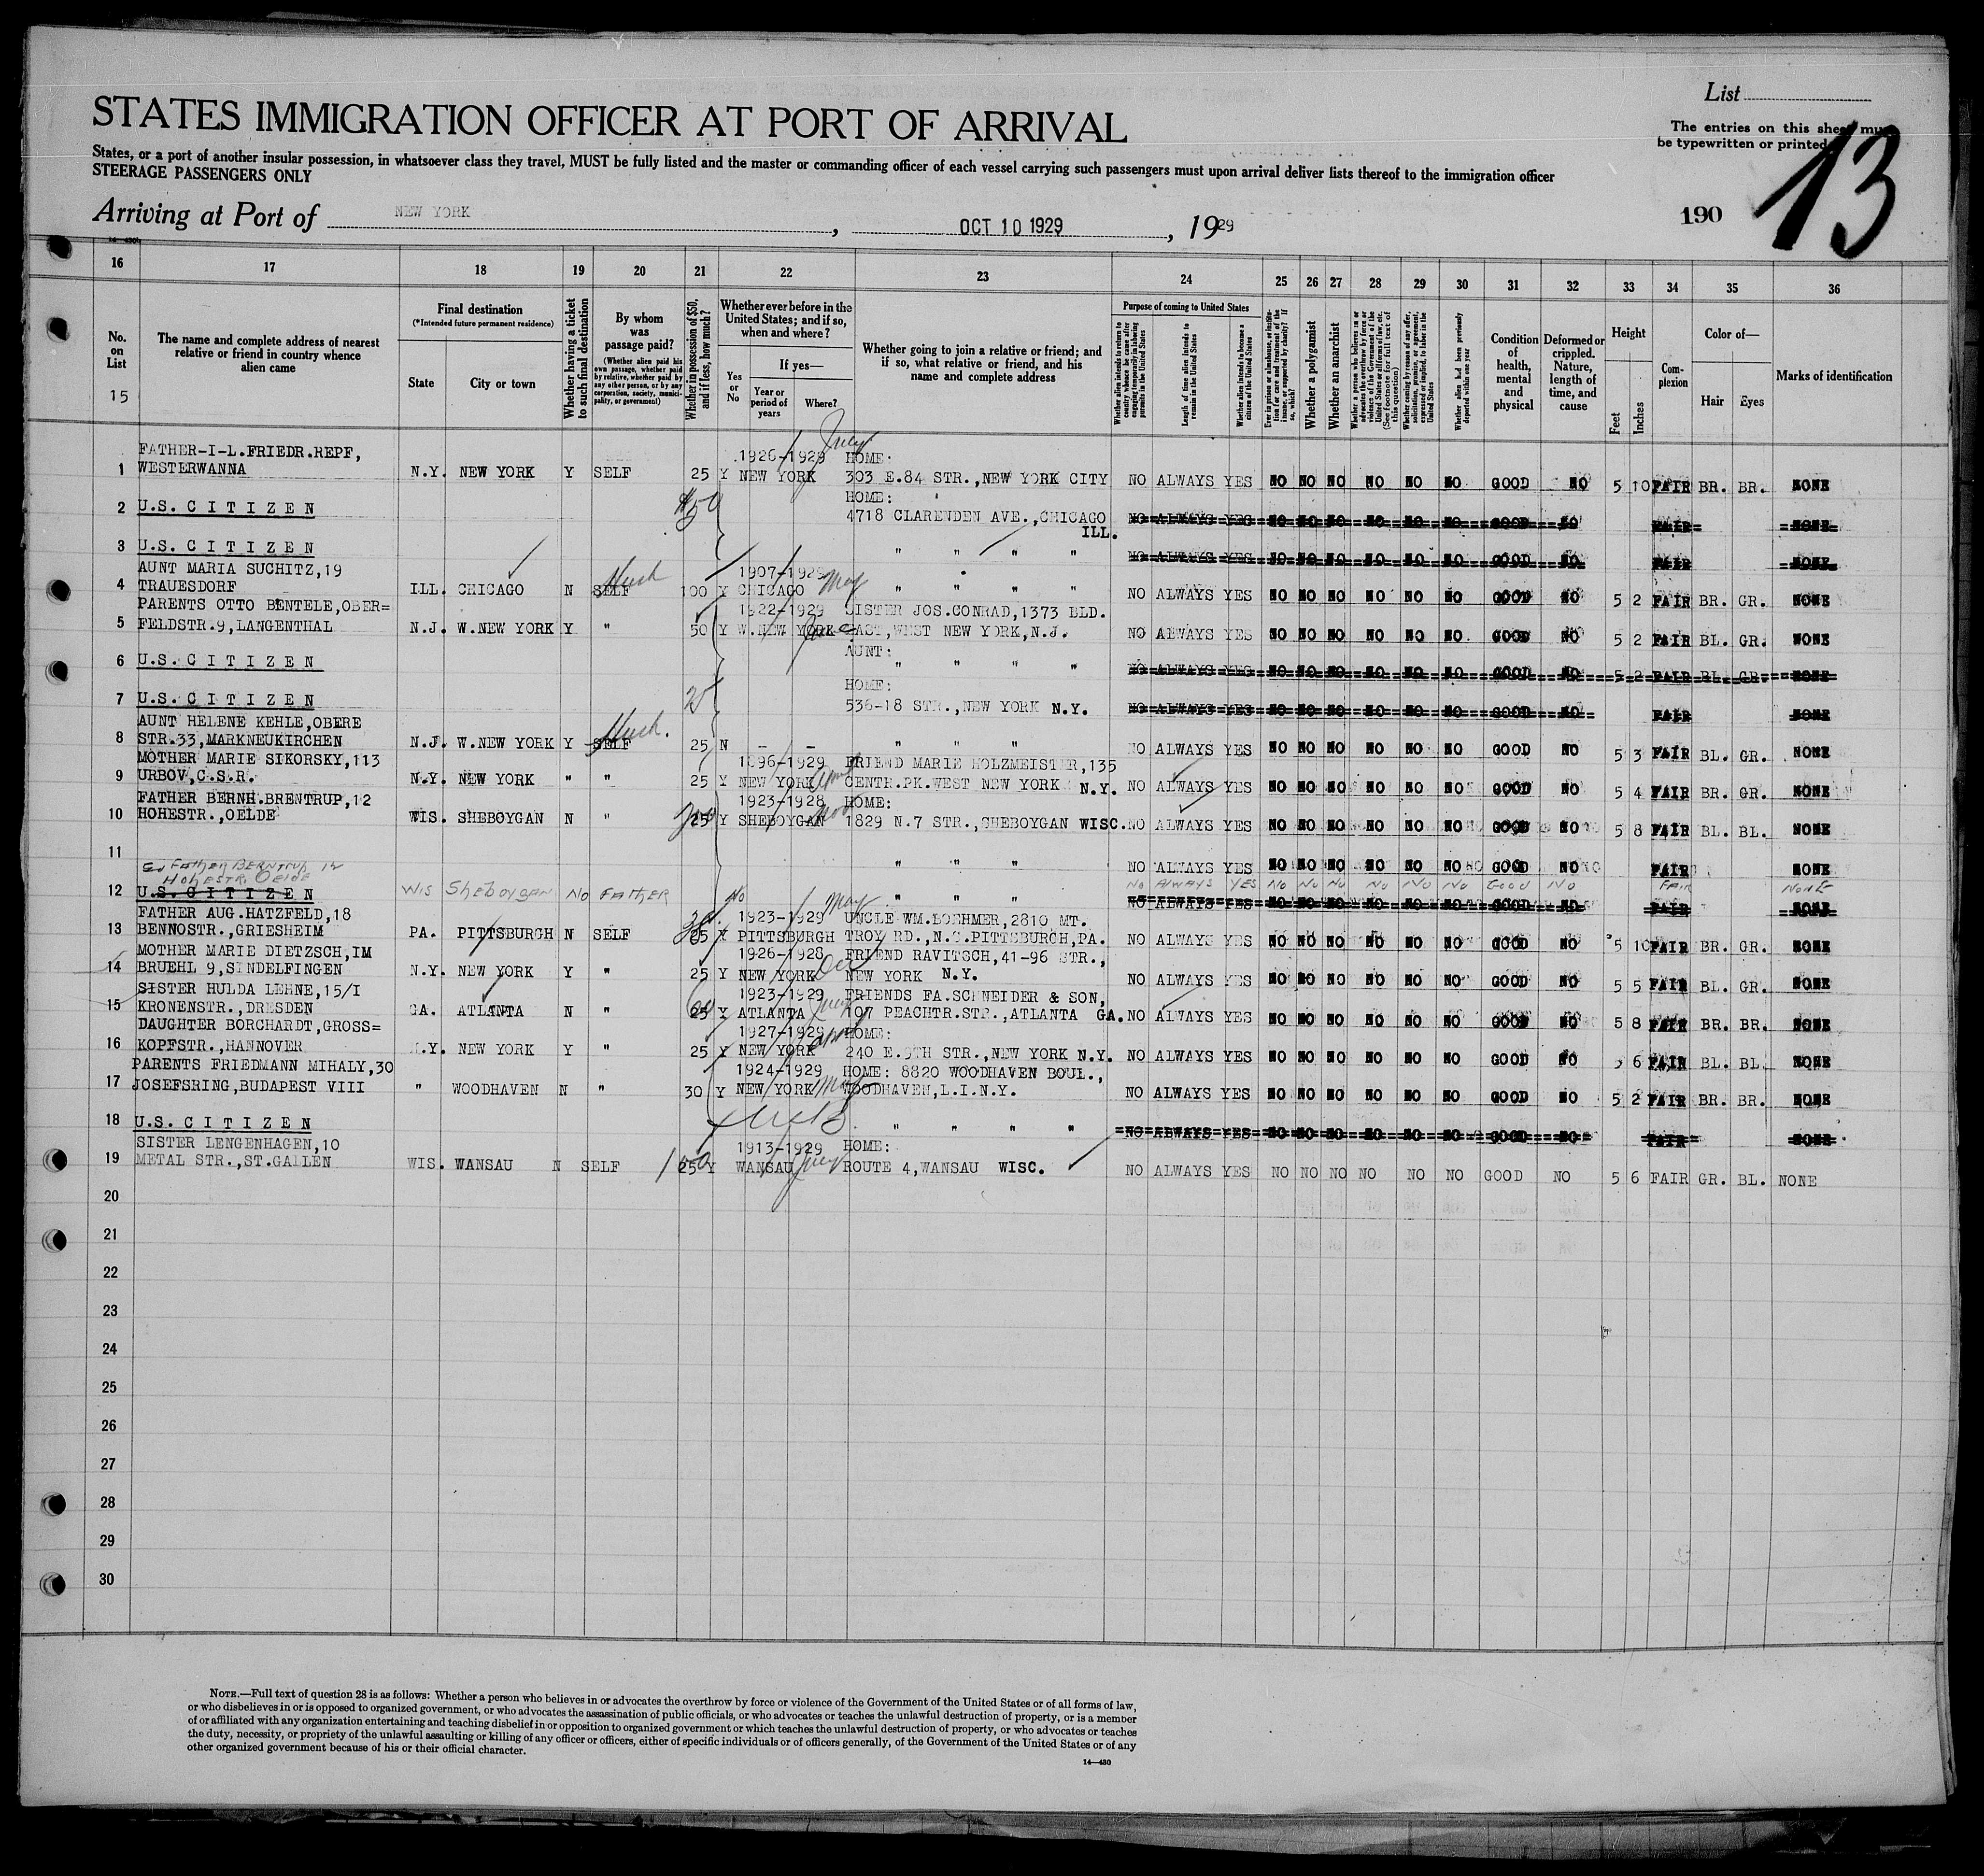 List
STATES IMMIGRATION OFFICER AT PORT OF ARRIVAL
The entries on this sheet
be typewritten or printed
13
States, or a port of another insular possession, in whatsoever class they travel, MUST be fully listed and the master or commanding officer of each vessel carrying such passengers must upon arrival deliver lists thereof to the immigration officer
STEERAGE PASSENGERS ONLY
Arriving at Port of NEW YORK, OCT 10 1929, 1929
190
16 17 18 19 20 21 22 23 24 25 26 27 28 29 30 31 32 33 34 35 36
No. on List
15
The name and complete address of nearest relative or friend in country whence alien came
Final destination
(*Intended future permanent residence)
State
City or town
Whether having a ticket to such final destination
By whom was passage paid?
(Whether alien paid his own passage, whether paid by relative, whether paid by any other person, or by any corporation, society, municipality, or government)
Whether in possession of $50, and if less, how much?
Whether ever before in the United States; and if so, when and where?
Yes or No
If yes—
Year or period of years
Where?
Whether going to join a relative or friend; and if so, what relative or friend, and his name and complete address
Purpose of coming to United States
Length of time alien intends to remain in the United States
Whether alien intends to become a citizen of the United States
Whether a polygamist
Whether an anarchist
(See footnote for full text of this question)
Whether alien had been previously deported within one year
Condition of health, mental and physical
Deformed or crippled. Nature, length of time, and cause
Height
Feet
Inches
Complexion
Color of—
Hair
Eyes
Marks of identification
FATHER-I-L.FRIEDR.REPF, 1926-1929 July HOME:
1 WESTERWANNA N.Y. NEW YORK Y SELF 25 Y NEW YORK 303 E.84 STR.,NEW YORK CITY NO ALWAYS YES NO NO NO NO NO NO GOOD NO 5 10 FAIR BR. BR. NONE
HOME:
2 U.S. C I T I Z E N $50 4718 CLARENDEN AVE.,CHICAGO NO ALWAYS YES NO NO NO NO NO NO GOOD NO FAIR NONE
ILL.
3 U.S. C I T I Z E N " " " " NO ALWAYS YES NO NO NO NO NO NO GOOD NO FAIR NONE
AUNT MARIA SUCHITZ,19 Hush 1907-1929 May
4 TRAUESDORF ILL. CHICAGO N SELF 100 Y CHICAGO " " " " NO ALWAYS YES NO NO NO NO NO NO GOOD NO 5 2 FAIR BR. GR. NONE
PARENTS OTTO BENTELE,OBER= 1922-1929 SISTER JOS.CONRAD,1373 BLD.
5 FELDSTR.9,LANGENTHAL N.J. W.NEW YORK Y " 50 Y W.NEW YORK EAST,WEST NEW YORK,N.J. NO ALWAYS YES NO NO NO NO NO NO GOOD NO 5 2 FAIR BL. GR. NONE
AUNT:
6 U.S. C I T I Z E N " " " " NO ALWAYS YES NO NO NO NO NO NO GOOD NO 5 2 FAIR BL. GR. NONE
HOME:
7 U.S. C I T I Z E N 25 536-18 STR.,NEW YORK N.Y. NO ALWAYS YES NO NO NO NO NO NO GOOD NO FAIR NONE
AUNT HELENE KEHLE,OBERE Hush.
8 STR.33,MARKNEUKIRCHEN N.J. W.NEW YORK Y SELF 25 N - - " " " NO ALWAYS YES NO NO NO NO NO NO GOOD NO 5 3 FAIR BL. GR. NONE
MOTHER MARIE SIKORSKY,113 1896-1929 FRIEND MARIE HOLZMEISTER,135
9 URBOV,C.S.R. N.Y. NEW YORK " " 25 Y NEW YORK CENTR.PK.WEST NEW YORK N.Y. NO ALWAYS YES NO NO NO NO NO NO GOOD NO 5 4 FAIR BR. GR. NONE
FATHER BERNH.BRENTRUP,12 1923-1928 Nov HOME:
10 HOHESTR.,OELDE WIS. SHEBOYGAN N " 200 25 Y SHEBOYGAN 1829 N.7 STR.,SHEBOYGAN WISC. NO ALWAYS YES NO NO NO NO NO NO GOOD NO 5 8 FAIR BL. BL. NONE
11 " " " NO ALWAYS YES NO NO NO NO NO NO GOOD NO FAIR NONE
Father BERNTRUP 12
HOHESTR. OELDE
WIS SHEBOYGAN NO FATHER No NO ALWAYS YES NO NO NO NO NO NO GOOD NO FAIR NONE
12 U.S. C I T I Z E N " " " NO ALWAYS YES NO NO NO NO NO NO GOOD NO FAIR NONE
FATHER AUG.HATZFELD,18 1923-1929 May UNCLE WM.LOEHMER,2810 MT.
13 BENNOSTR.,GRIESHEIM PA. PITTSBURGH N SELF 25 Y PITTSBURGH TROY RD.,N.S.PITTSBURGH,PA. NO ALWAYS YES NO NO NO NO NO NO GOOD NO 5 10 FAIR BR. GR. NONE
MOTHER MARIE DIETZSCH,IM 1926-1928 Dec FRIEND RAVITSCH,41-96 STR.,
14 BRUEHL 9,SINDELFINGEN N.Y. NEW YORK Y " 25 Y NEW YORK NEW YORK N.Y. NO ALWAYS YES NO NO NO NO NO NO GOOD NO 5 5 FAIR BL. GR. NONE
SISTER HULDA LEHNE,15/I 1923-1929 FRIENDS FA.SCHNEIDER & SON,
15 KRONENSTR.,DRESDEN GA. ATLANTA N " 25 Y ATLANTA 207 PEACHTR.STR.,ATLANTA GA. NO ALWAYS YES NO NO NO NO NO NO GOOD NO 5 8 FAIR BR. BR. NONE
DAUGHTER BORCHARDT,GROSS= 1927-1929 HOME:
16 KOPFSTR.,HANNOVER N.Y. NEW YORK Y " 25 Y NEW YORK 240 E.9TH STR.,NEW YORK N.Y. NO ALWAYS YES NO NO NO NO NO NO GOOD NO 5 6 FAIR BL. BL. NONE
PARENTS FRIEDMANN MIHALY,30 1924-1929 May HOME: 8820 WOODHAVEN BOUL.,
17 JOSEFSRING,BUDAPEST VIII " WOODHAVEN N " 30 Y NEW YORK WOODHAVEN,L.I.N.Y. NO ALWAYS YES NO NO NO NO NO NO GOOD NO 5 2 FAIR BR. BR. NONE
18 U.S. C I T I Z E N " " " " NO ALWAYS YES NO NO NO NO NO NO GOOD NO FAIR NONE
SISTER LENGENHAGEN,10 1913-1929 HOME:
19 METAL STR.,ST.GALLEN WIS. WANSAU N SELF 25 Y WANSAU July ROUTE 4,WANSAU WISC. NO ALWAYS YES NO NO NO NO NO NO GOOD NO 5 6 FAIR GR. BL. NONE
20
21
22
23
24
25
26
27
28
29
30
NOTE.—Full text of question 28 is as follows: Whether a person who believes in or advocates the overthrow by force or violence of the Government of the United States or of all forms of law,
or who disbelieves in or is opposed to organized government, or who advocates the assassination of public officials, or who advocates or teaches the unlawful destruction of property, or is a member
of or affiliated with any organization entertaining and teaching disbelief in or opposition to organized government or which teaches the unlawful destruction of property, or who advocates or teaches
the duty, necessity, or propriety of the unlawful assaulting or killing of any officer or officers, either of specific individuals or of officers generally, of the Government of the United States or of any
other organized government because of his or their official character.
14—430